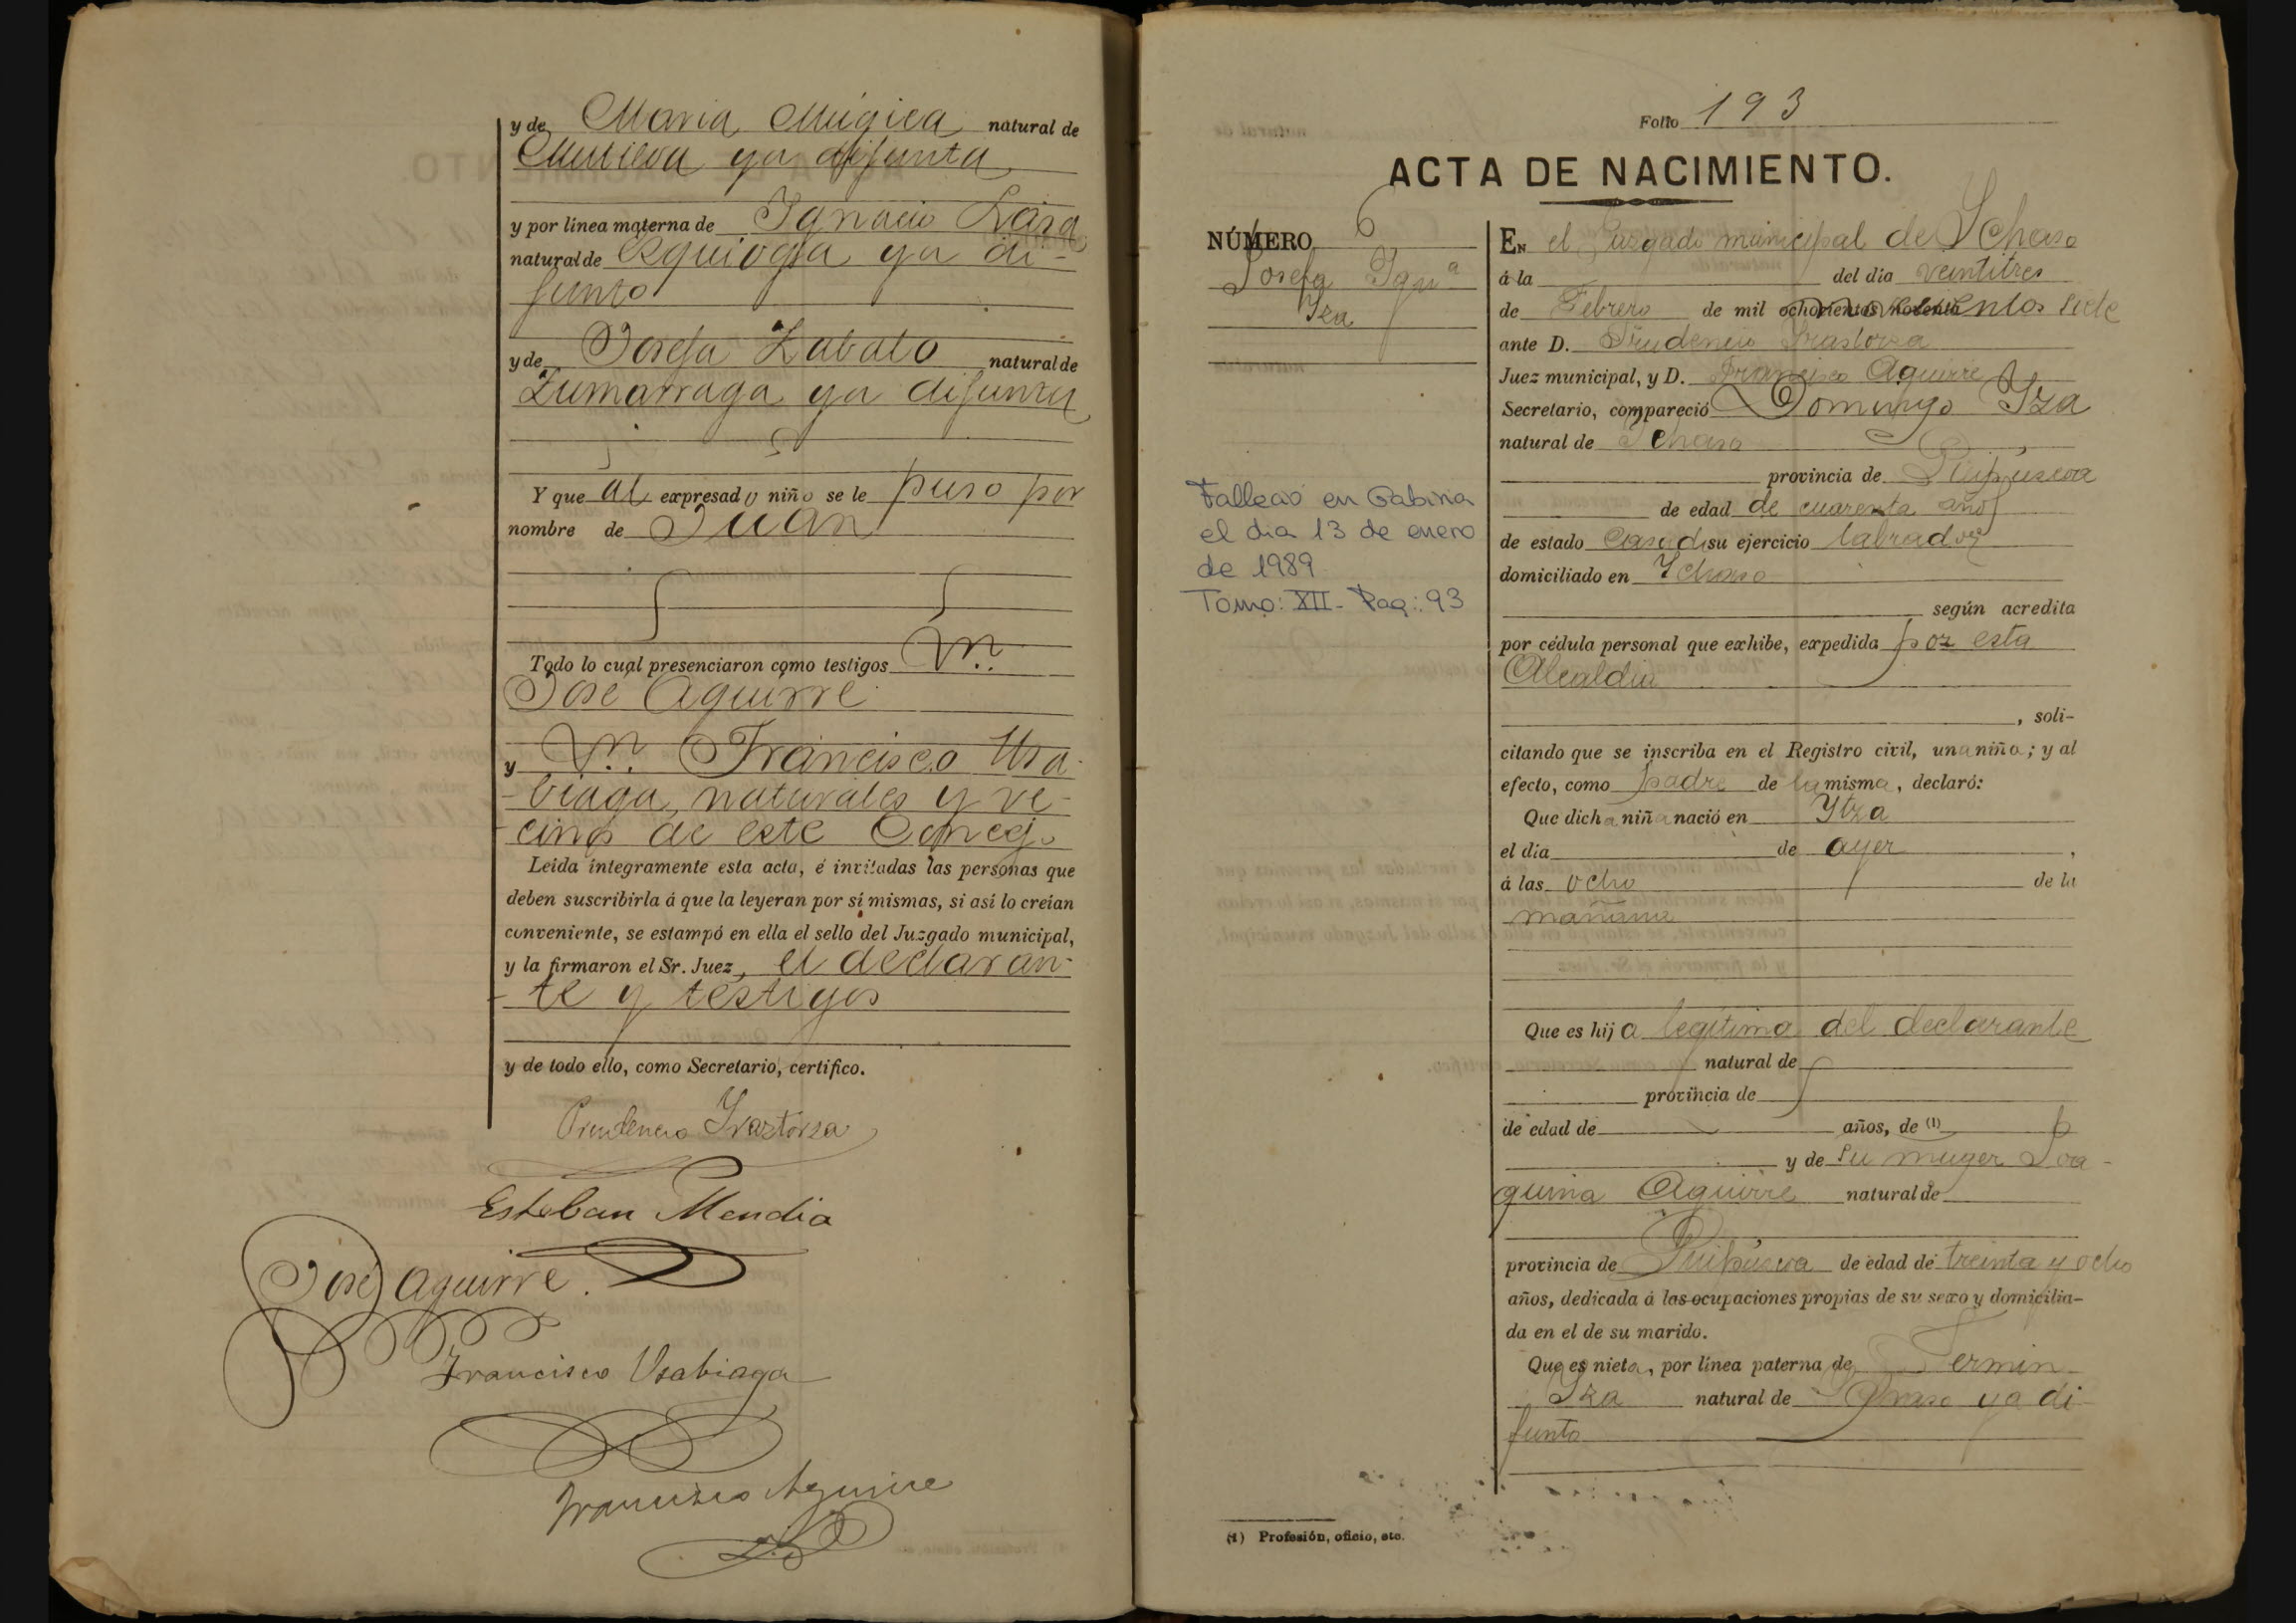 y de Maria Múgica natural de
Mutiloa ya difunta
y por línea materna de Ignacio Lasa
natural de Ezquioga ya di-
funto
y de Josefa Zabalo natural de
Zumarraga ya difunta
Y que al expresado niño se le puso por
nombre de Juan
Todo lo cual presenciaron como testigos
José Aguirre
y Francisco Usa-
-biaga, naturales y ve-
-cinos de este Concejo
Leída íntegramente esta acta, é invitadas las personas que
deben suscribirla á que la leyeran por sí mismas, si así lo creían
conveniente, se estampó en ella el sello del Juzgado municipal,
y la firmaron el Sr. Juez, el declaran-
-te y testigos
y de todo ello, como Secretario, certifico.
Prudencio Yraztorza
Esteban Mendia
José Aguirre.
Francisco Usabiaga
Francisco Aguirre
Folio 193
ACTA DE NACIMIENTO.
NÚMERO 6
Josefa Igna
Iza
Falleció en Gabiria
el dia 13 de enero
de 1989
Tomo: XII - Pag.: 93
EN el Juzgado municipal de Ichaso
á la del dia veintitres
de Febrero de mil novecientos siete
ante D. Prudencio Irastorza
Juez municipal, y D. Francisco Aguirre
Secretario, compareció Domingo Iza
natural de Ichaso
provincia de Guipúscoa
de edad de cuarenta años
de estado Casado su ejercicio labrador
domiciliado en Ychaso
según acredita
por cédula personal que exhibe, expedida por esta
Alcaldia
, soli-
citando que se inscriba en el Registro civil, una niña; y al
efecto, como padre de la misma, declaró:
Que dicha niña nació en Ytza
el dia de ayer,
á las ocho de la
mañana
Que es hija legitima del declarante
natural de
provincia de
de edad de años, de (1)
y de su muger Joa-
quina Aguirre natural de
provincia de Guipúscoa de edad de treinta y ocho
años, dedicada á las ocupaciones propias de su sexo y domicilia-
da en el de su marido.
Que es nieta, por línea paterna de Fermin
Iza natural de Ichaso ya di-
funto
(1) Profesión, oficio, etc.